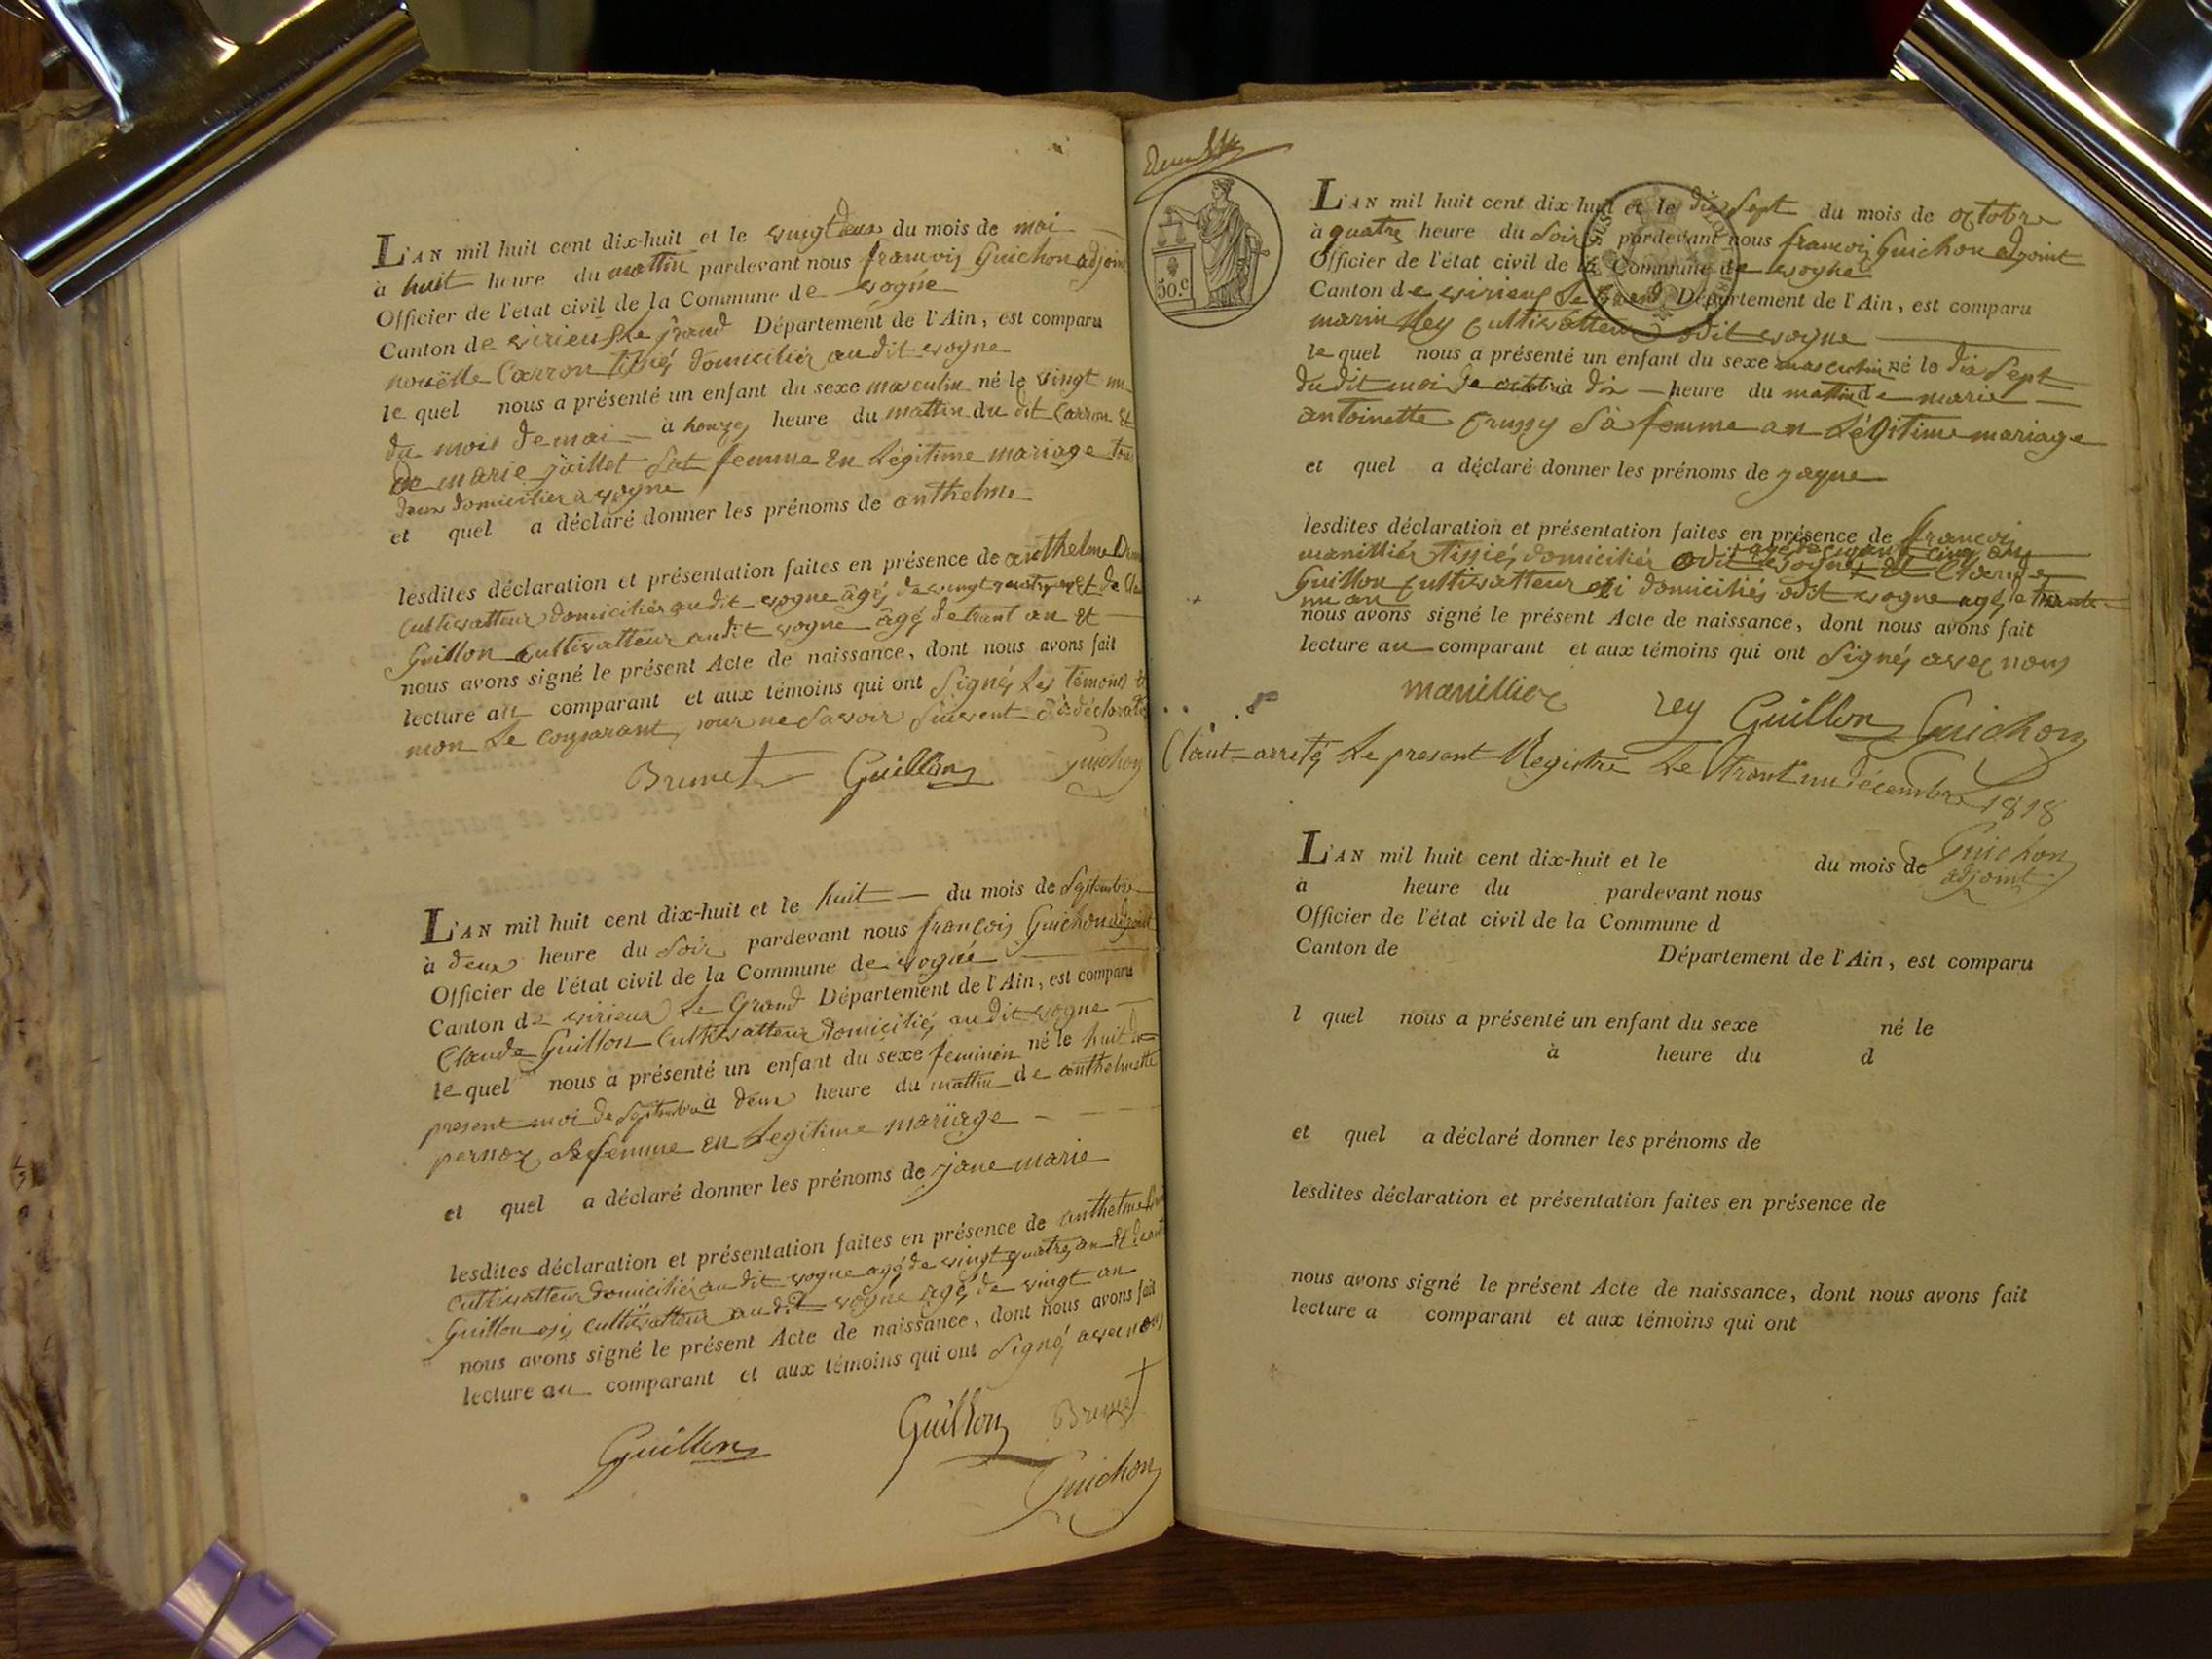 L'AN mil huit cent dix-huit et le vingt deux du mois de mai
à huit heure du mattin pardevant nous francois Guichon adjoint
Officier de l'état civil de la Commune de vogne
Canton de virieu le grand Département de l'Ain, est comparu
nouëlle Carron tissié domicilier audit vogne
le quel nous a présenté un enfant du sexe masculin né le vingt un
du mois de mai à honze heure du mattin du dit Carron et
de marie juillet sat femme en Légitime mariage tous
deux domicilier a vogne
et quel a déclaré donner les prénoms de anthelme
lesdites déclaration et présentation faites en présence de anthelme
Cultivatteur domicilier audit vogne âgé de vingt quatre an et de
Guillon Cultivatteur audit vogne âgé de trant an et
nous avons signé le présent Acte de naissance, dont nous avons fait
lecture au comparant et aux témoins qui ont Signé Les témoins
mon Le comparant pour ne savoir
Brunet Guillon Guichon
L'AN mil huit cent dix-huit et le huit du mois de Septembre
à deux heure du Soir pardevant nous françois Guichon adjoint
Officier de l'état civil de la Commune de vogne
Canton de virieux Le Grand Département de l'Ain, est comparu
Claude Guillon Cultivatteur domicilié audit vogne
le quel nous a présenté un enfant du sexe feminin né le huit du
present moi de Septembre à deux heure du mattin de anthelmette
pernoz Sa femme en Legitime mariage
et quel a déclaré donner les prénoms de jane marie
lesdites déclaration et présentation faites en présence de anthelme
Cultivatteur domicilié audit vogne agé de vingt quatre an et
Guillon osi cultivatteur audit vogne agé de vingt an
nous avons signé le présent Acte de naissance, dont nous avons fait
lecture au comparant et aux témoins qui ont Signé avec nous
Guillon Guillon Brunet
Guichon
50.c
L'AN mil huit cent dix-huit et le dix Sept du mois de octobre
à quatre heure du Soir pardevant nous francois Guichon adjoint
Officier de l'état civil de la Commune de vogne
Canton de virieux Le Grand Département de l'Ain, est comparu
marin Rey Cultivatteur odit vogne
le quel nous a présenté un enfant du sexe masculin né le dix Sept
du dit moi de octobre à dix heure du mattin de marie
antoinette Crussy Sa femme an Légitime mariage
et quel a déclaré donner les prénoms de jaque
lesdites déclaration et présentation faites en présence de francois
manillier tissié domicilier odit vogne et Claude
Guillon Cultivatteur osi domicilié odit vogne agé de trante
un an
nous avons signé le présent Acte de naissance, dont nous avons fait
lecture au comparant et aux témoins qui ont Signé avec nous
manillier rey Guillon Guichon
Claut arreté Le present Registre Le trant un décembre 1818
Guichon
adjoint
L'AN mil huit cent dix-huit et le du mois de
à heure du pardevant nous
Officier de l'état civil de la Commune d
Canton de Département de l'Ain, est comparu
l quel nous a présenté un enfant du sexe né le
à heure du d
et quel a déclaré donner les prénoms de
lesdites déclaration et présentation faites en présence de
nous avons signé le présent Acte de naissance, dont nous avons fait
lecture a comparant et aux témoins qui ont